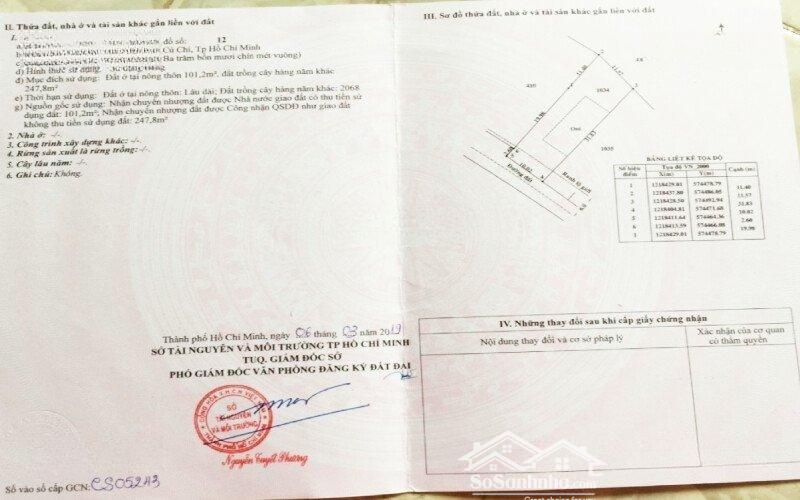 II. Thửa đất, nhà ở và tài sản khác gắn liền với đất
đồ số: 12
Củ Chi, Tp Hồ Chí Minh
(Ba trăm bốn mươi chín mét vuông)
d) Hình thức sử dụng:
đ) Mục đích sử dụng: Đất ở tại nông thôn 101,2m², đất trồng cây hàng năm khác
247,8m²
e) Thời hạn sử dụng: Đất ở tại nông thôn: Lâu dài; Đất trồng cây hàng năm khác: 2068
g) Nguồn gốc sử dụng: Nhận chuyển nhượng đất được Nhà nước giao đất có thu tiền sử
dụng đất: 101,2m²; Nhận chuyển nhượng đất được Công nhận QSDĐ như giao đất
không thu tiền sử dụng đất: 247,8m²
2. Nhà ở: -/-
3. Công trình xây dựng khác: -/-
4. Rừng sản xuất là rừng trồng: -/-
5. Cây lâu năm: -/-
6. Ghi chú: Không.
Thành phố Hồ Chí Minh, ngày 06 tháng 03 năm 2019
SỞ TÀI NGUYÊN VÀ MÔI TRƯỜNG TP HỒ CHÍ MINH
TUQ. GIÁM ĐỐC SỞ
PHÓ GIÁM ĐỐC VĂN PHÒNG ĐĂNG KÝ ĐẤT ĐAI
SỞ
TÀI NGUYÊN
VÀ MÔI TRƯỜNG
Nguyễn Tuyết Phương
Số vào sổ cấp GCN: CS05243
III. Sơ đồ thửa đất, nhà ở và tài sản khác gắn liền với đất
1034
1035
19.98
31.83
10.02
Đường đất
Ranh lộ giới
BẢNG LIỆT KÊ TỌA ĐỘ
Số hiệu điểm Tọa độ VN_2000 Cạnh (m)
X(m) Y(m)
1 1218429.01 574478.79
11.40
2 1218437.80 574486.05
11.57
3 1218428.50 574492.94
31.83
4 1218404.81 574471.68
10.02
5 1218411.64 574464.36
2.60
6 1218413.59 574466.08
19.98
1 1218429.01 574478.79
IV. Những thay đổi sau khi cấp giấy chứng nhận
Nội dung thay đổi và cơ sở pháp lý
Xác nhận của cơ quan
có thẩm quyền
SoSanhnha.com